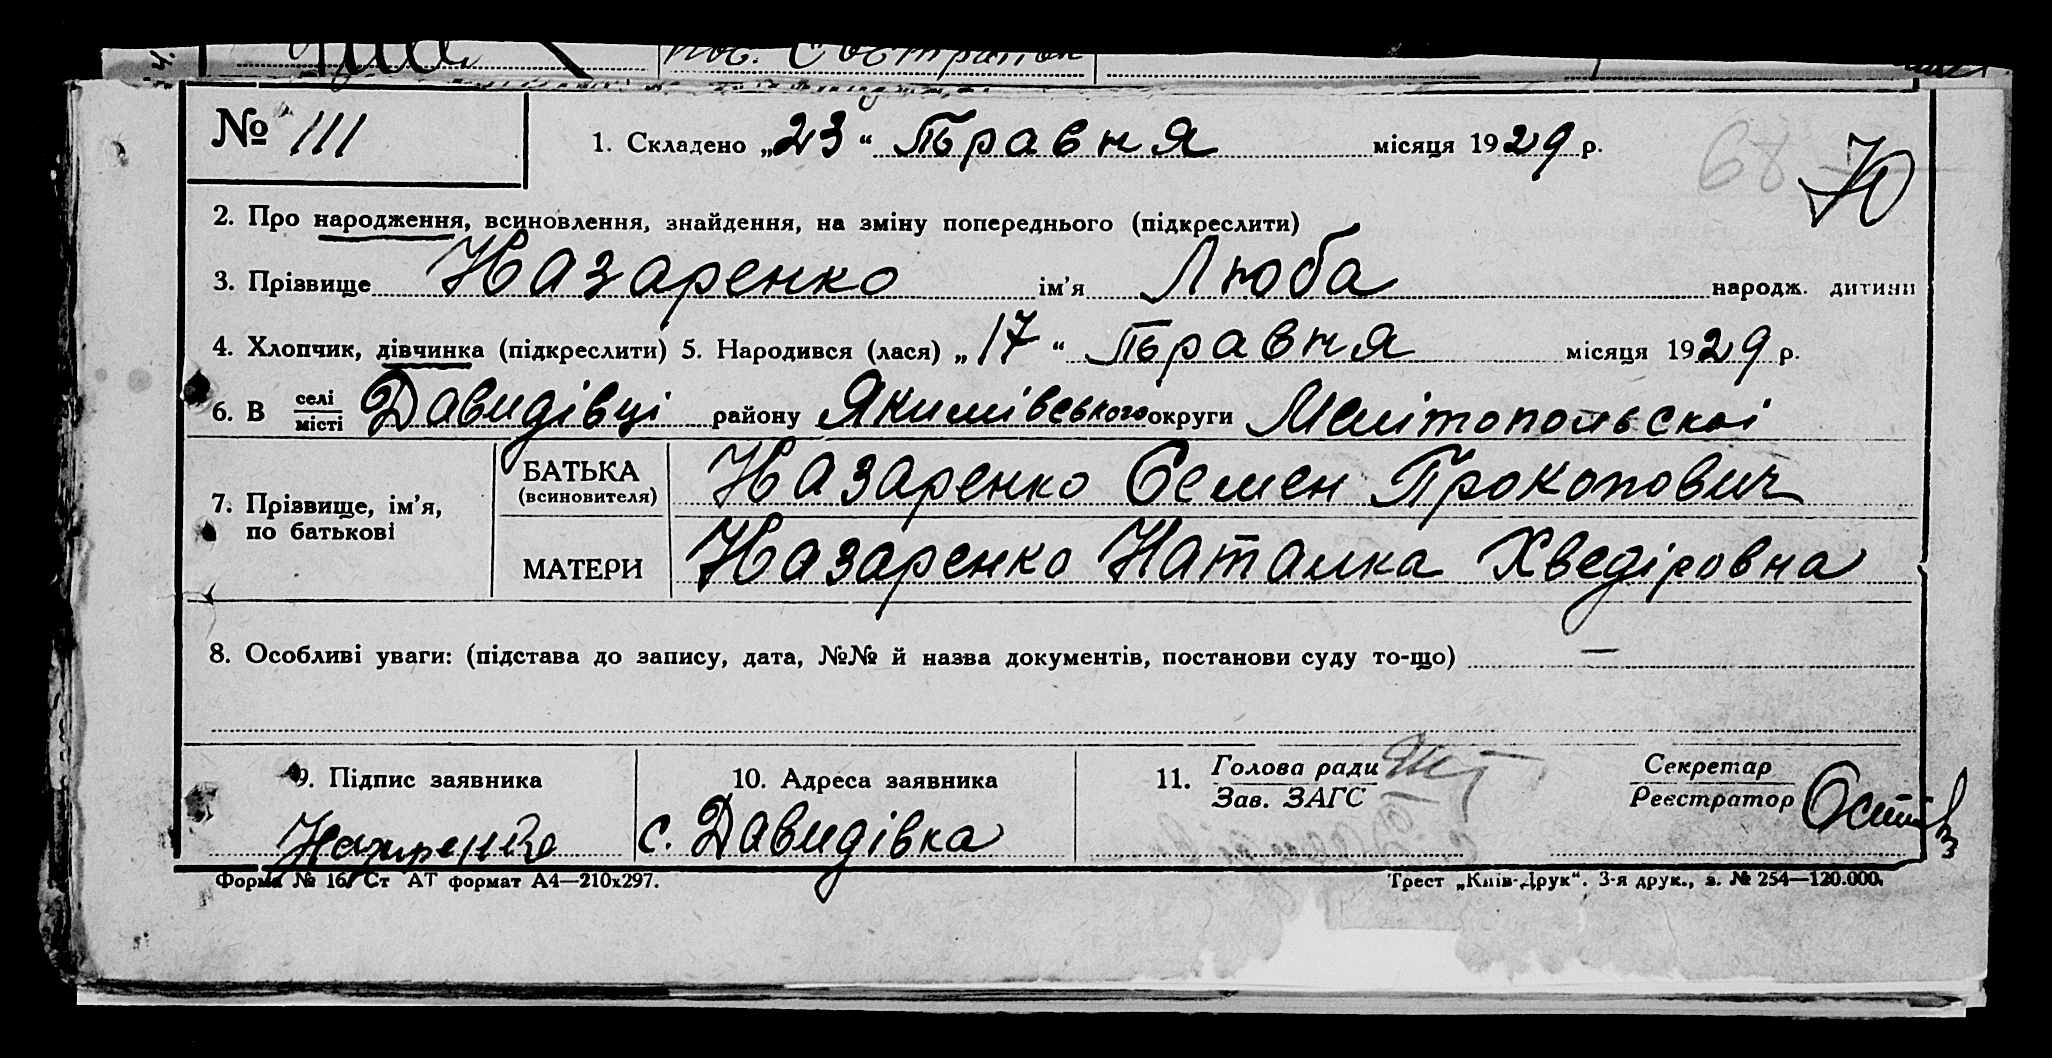 № 111
1. Складено „23“ Травня місяця 1929 р.
68
Ю
2. Про народження, всиновлення, знайдення, на зміну попереднього (підкреслити)
3. Прізвище Назаренко ім'я Люба народж. дитини
4. Хлопчик, дівчинка (підкреслити) 5. Народився (лася) „17“ Травня місяця 1929 р.
6. В селі місті Давидівці району Якимівського округи Мелітопольскої
7. Прізвище, ім'я, по батькові
БАТЬКА (всиновителя) Назаренко Семен Прокопович
МАТЕРИ Назаренко Наталка Хведіровна
8. Особливі уваги: (підстава до запису, дата, №№ й назва документів, постанови суду то-що) —
9. Підпис заявника
Назаренко
10. Адреса заявника
с. Давидівка
11. Голова ради
Зав. ЗАГС
Секретар
Реєстратор
Форма № 16. Ст АТ формат А4—210х297.
Трест „Київ-Друк“. 3-я друк., з. № 254—120.000.